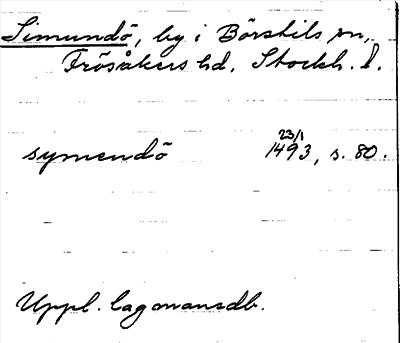 Simundö, by i Börstils sn,
Frösåkers hd, Stockh. l.
symendö 23/1 1493, s. 80.
Uppl. lagmansdb.